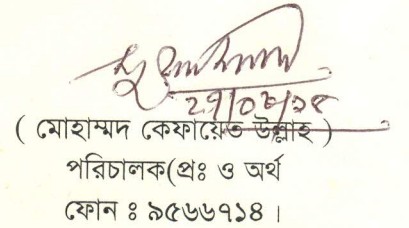 ( মোহাম্মদ কেফায়েত উল্লাহ )
পরিচালক(প্রঃ ও অর্থ
ফোন ঃ ৯৫৬৬৭১৪।